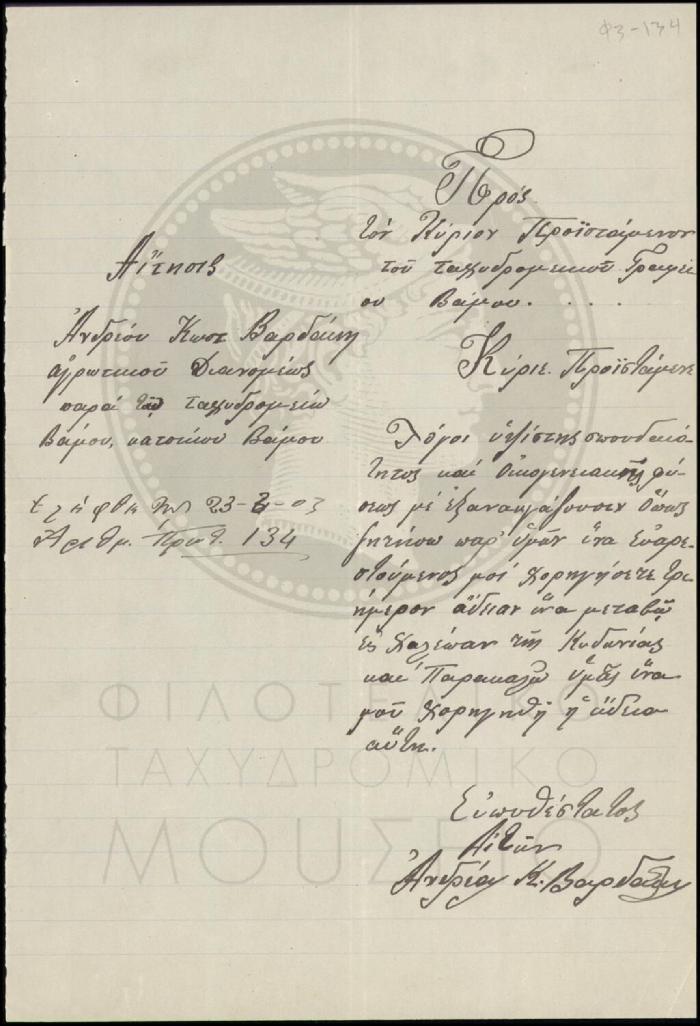 Φ3-134
Πρός
τον Κύριον Προϊστάμενον
του ταχυδρομικού Γραφεί
ου Βάμου . . . .
Αίτησις
Ανδρέου Κωσ Βαρδάκη
αγρωτικού Διανομέως
παρά τω ταχυδρομείω
Βάμου, κατοίκου Βάμου
Ελήφθη τη 23-3-03
Αριθμ. Πρωτ. 134
Κύριε Προϊστάμενε
Λόγοι υψίστης σπουδαιό
τητος και οικογενειακής φύ
σεως με εξαναγκάζουσιν όπως
ζητήσω παρ' υμών ίνα ευαρε-
στούμενος μοί χορηγήσετε τρι
ήμερον άδειαν ίνα μεταβώ
εις Χαλέπαν της Κυδωνίας
και Παρακαλώ υμάς ίνα
μού χορηγηθή η άδεια
αύτη.
Ευπειθέστατος
Αιτών
Ανδρέας Κ. Βαρδάκης
ΦΙΛΟΤΕΛΙΚΟ
ΤΑΧΥΔΡΟΜΙΚΟ
ΜΟΥΣΕΙΟ